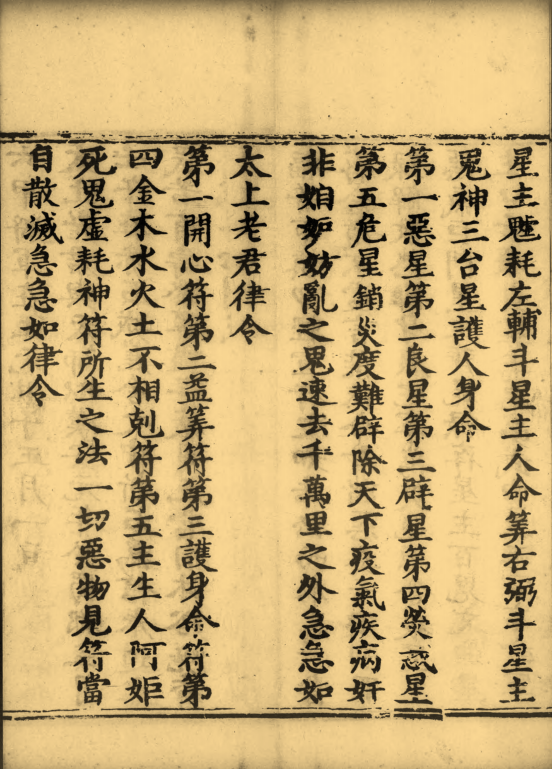 星主虛耗左輔斗星主人命筭右弼斗星主
䰟神三台星護人身命
第一惡星第二良星第三辟星第四熒惑星
第五危星銷災度難辟除天下疫氣疾病奸
非妒妨亂之鬼速去千萬里之外急急如
太上老君律令
第一開心符第二益筭符第三護身命符第
四金木水火土不相剋符第五主生人阿姖
死鬼虛耗神符所生之法一切惡物見符當
自散滅急急如律令